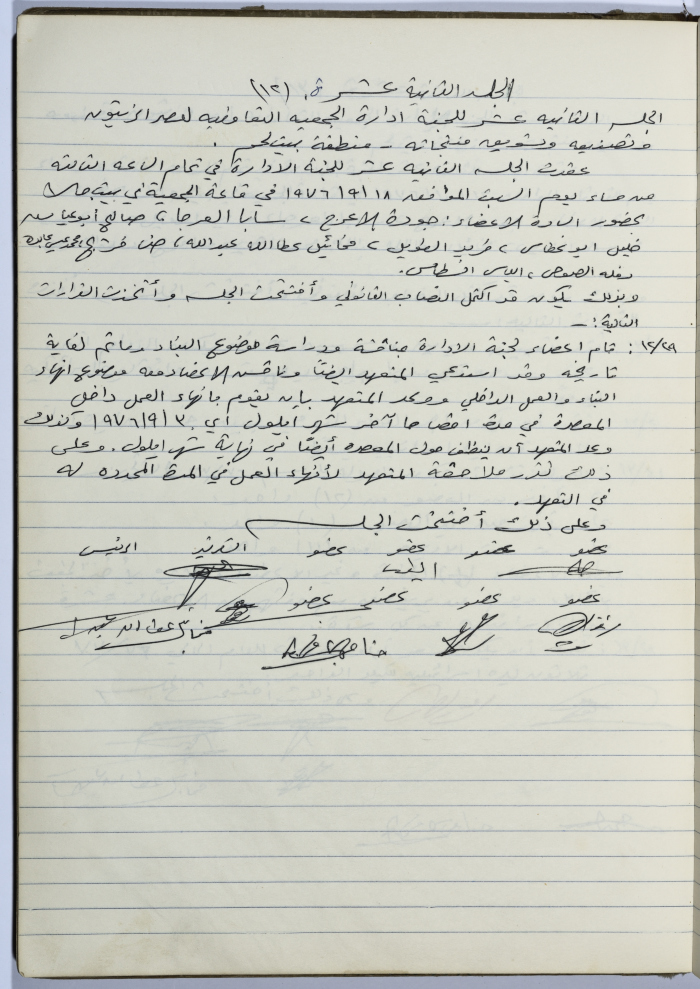 الجلسه الثانية عشرة. (١٢)
الجلسه الثانيه عشر للجنة ادارة الجمعيه التعاونيه لعصر الزيتون
وتصنيعه وتسويق منتجاته - منطقة بيت لحم .
عقدت الجلسه الثانيه عشر للجنة الادارة في تمام الساعه الثالثه
من مساء يوم السبت الموافق ١٨/٩/١٩٧٦ في قاعة الجمعية في بيت جالا
بحضور السادة الاعضاء: جودة الاعرج، سابا العرجا، صالح أبو عياش
خليل ابو غطاس، فريد الطويل، مخائيل عطاالله عبدالله، حنا فريج، محمد عيسى عابده
الياس قسطاس.
وبذلك يكون قد اكتمل النصاب القانوني وأفتتحت الجلسه وأتخذت القرارات
التالية: -
١٢/٢٩: قام اعضاء لجنة الادارة مناقشة ودراسة موضوع البناء وماتم لغاية
تاريخه وقد استدعي المتعهد ايضًا وناقش الاعضاء معه موضوع انهاء
البناء والعمل الداخلي ووعد المتعهد بأن يقوم بانهاء العمل داخل
المعصرة في مدة اقصاها آخر شهر ايلول أي ٣٠/٩/١٩٧٦ وكذلك
وعد المتعهد أن ينظف حول المعصره أيضًا في نهاية شهر ايلول. وعلى
ذلك تقرر ملاحقة المتعهد لأنهاء العمل في المدة المحدده له
في التعهد.
وعلى ذلك أختتمت الجلسه
عضو عضو عضو عضو السكرتير الرئيس
عضو عضو عضو عضو
مخائيل عطا الله عبدالله
حنا